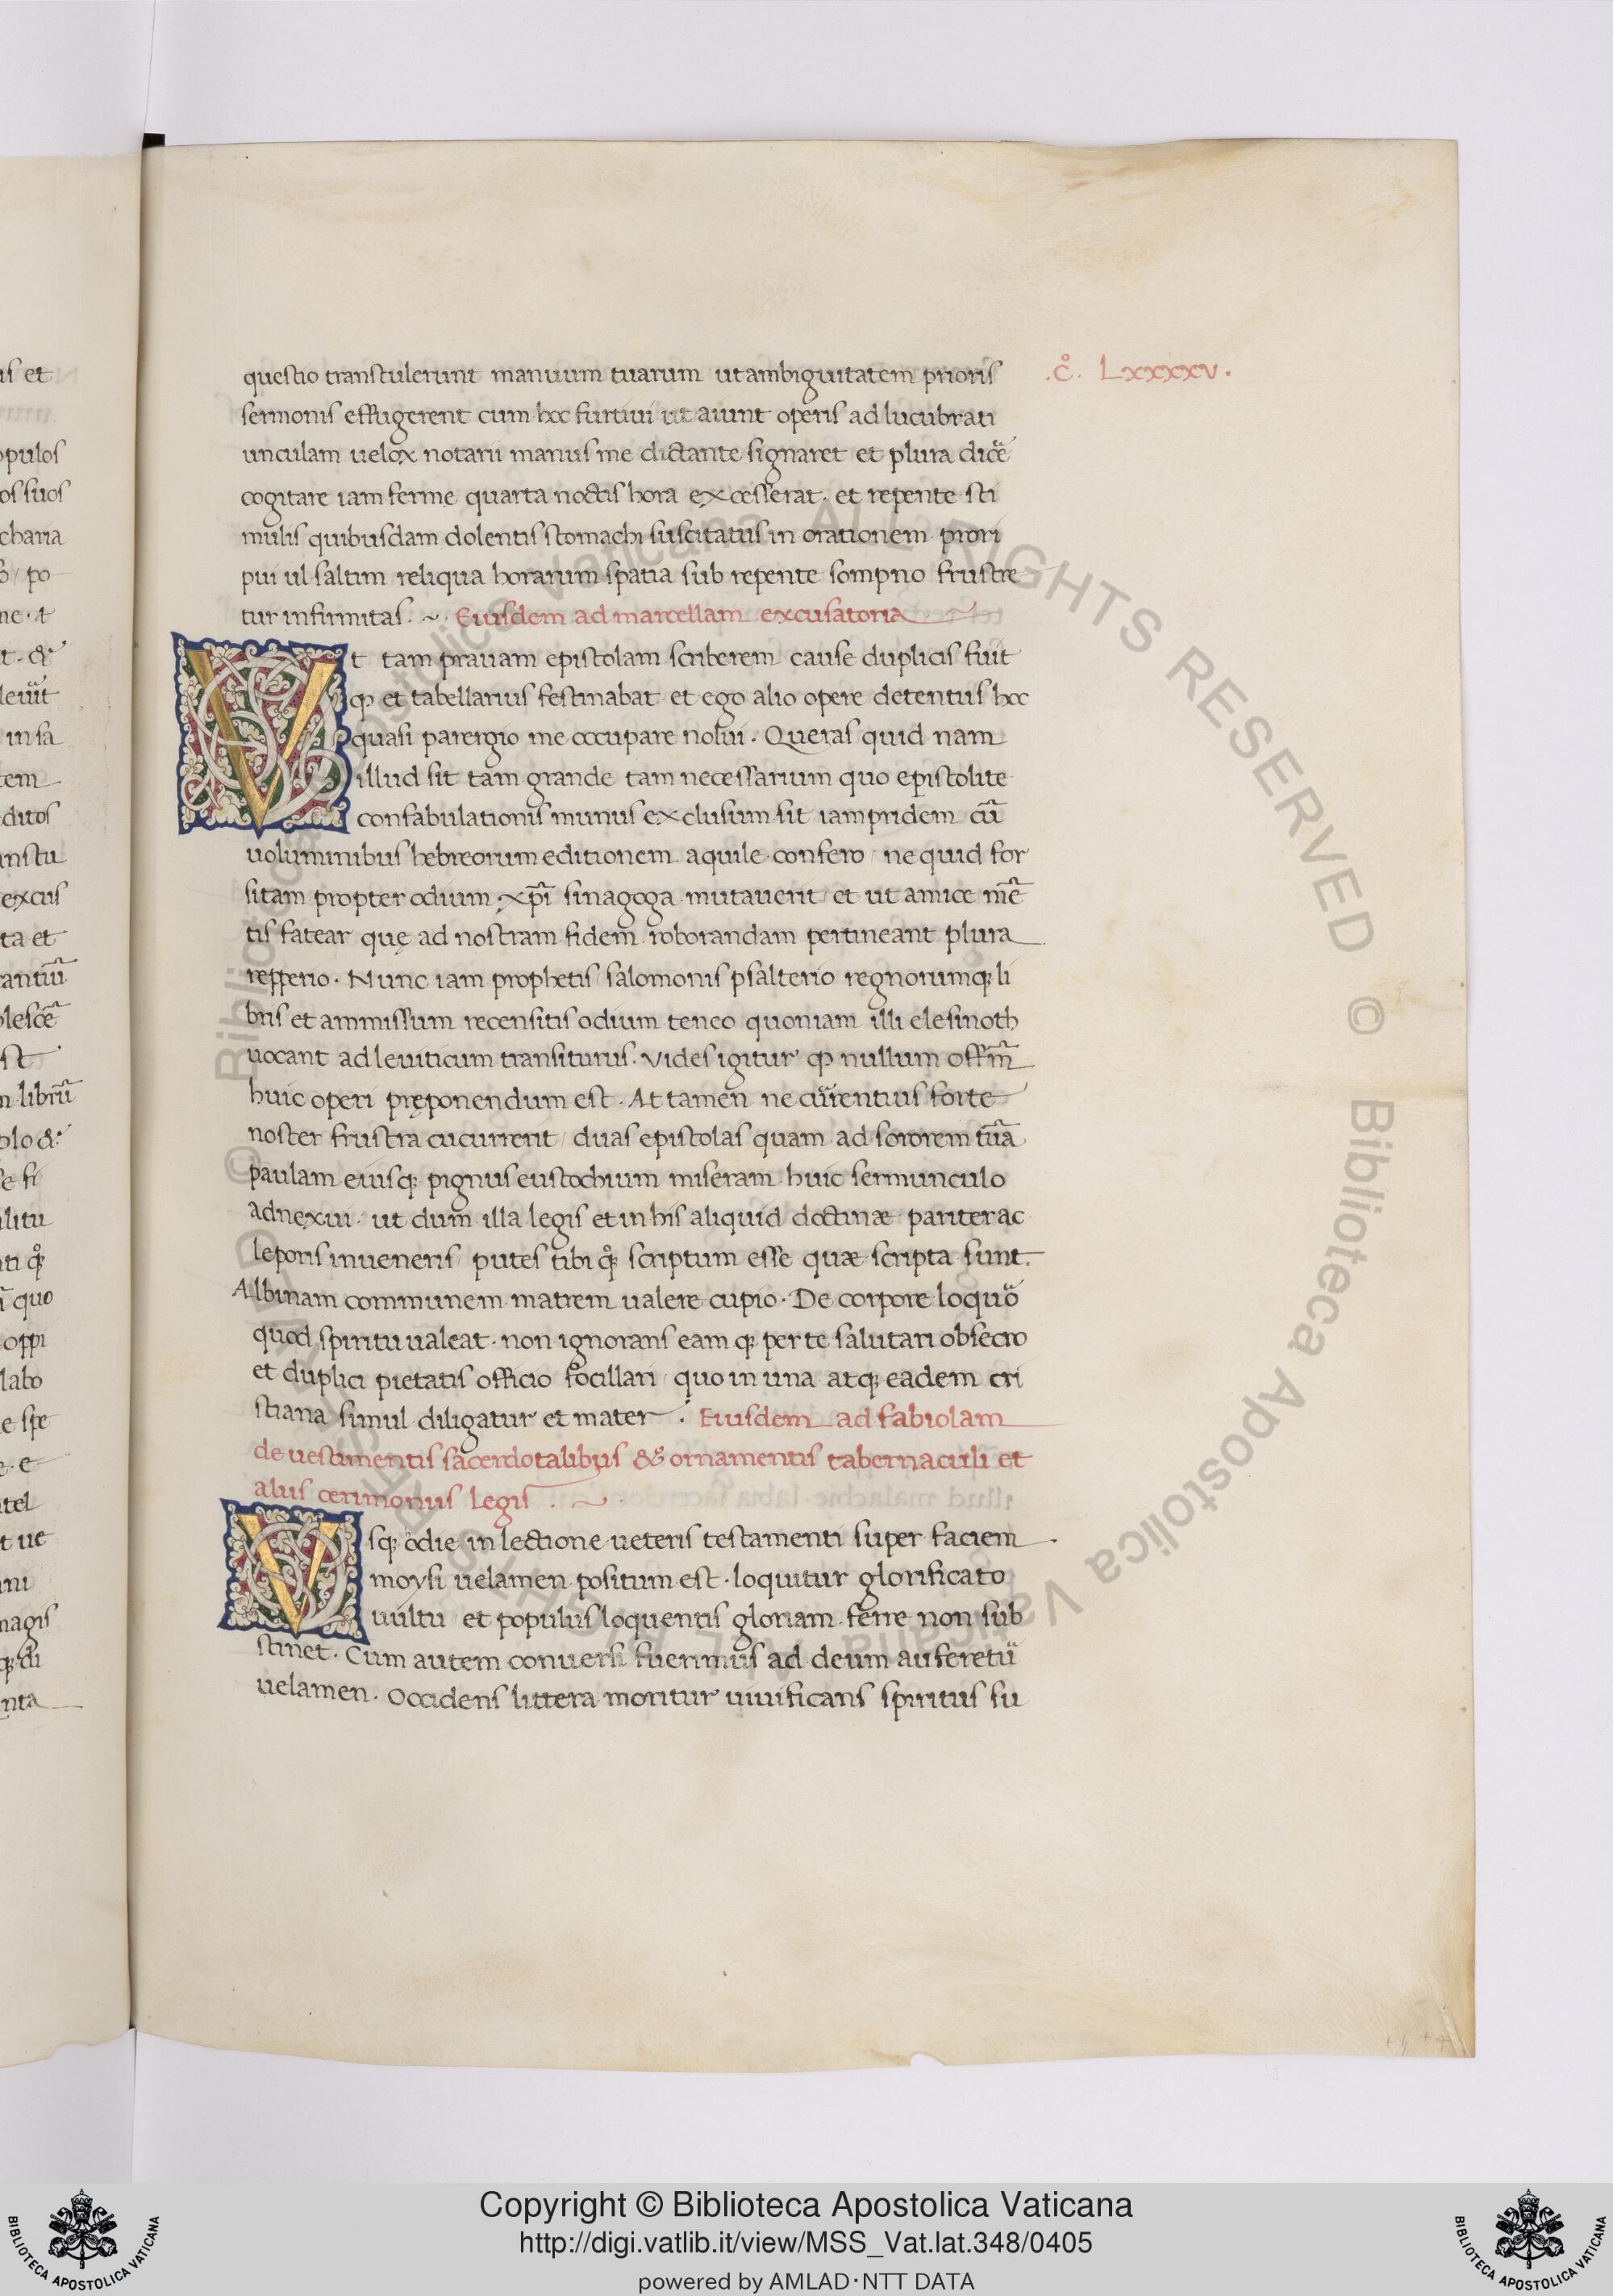 questio transtulerunt manuum tuarum ut ambiguitatem prioris
.c̊. Lxxxxv.
sermonis effugerent cum hoc furtiui ut aiunt operis ad lucubrati
unculam uelox notarii manus me dictante signaret et plura dicẽ
cogitare iam ferme quarta noctis hora excesserat. et repente sti
mulis quibusdam dolentis stomachi suscitatus in orationem prori
pui ul saltim reliqua horarum spatia sub repente sompno frustre
tur infirmitas. ~. Eiusdem ad marcellam excusatoria
Vt tam prauam epistolam scriberem cause duplicis fuit
ꝙ et tabellarius festinabat et ego alio opere detentus hoc
quasi parergio me occupare nolui. Queras quid nam
illud sit tam grande tam necessarium quo epistolite
confabulationis munus exclusum sit iampridem cũ
uoluminibus hebreorum editionem aquile confero / ne quid for
sitam propter odium xp̃i sinagoga mutauerit / et ut amice mẽ
tis fatear quę ad nostram fidem roborandam pertineant plura
repperio. Nunc iam prophetis / salomonis psalterio regnorumqꝫ li
bris et ammissum recensitis odium teneo quoniam illi elesmoth
uocant ad leuiticum transiturus. Vides igitur ꝙ nullum offm̃
huic operi pręponendum est. At tamen ne cũrentius forte
noster frustra cucurrerit / duas epistolas quam ad sororem tũã
paulam eiusqꝫ pignus eustochium miseram huic sermunculo
adnexui. ut dum illa legis et in his aliquid doctinæ pariter ac
leporis inueneris / putes tibi qͦꝫ scriptum esse quæ scripta sunt.
Albinam communem matrem ualere cupio. De corpore loquõ
quod spiritu ualeat. non ignorans eam qꝫ per te salutari obsecro
et duplici pietatis officio focillari / quo in una atqꝫ eadem cri
stiana simul diligatur et mater. Eiusdem ad fabiolam
de uestimentis sacerdotalibus & ornamentis tabernaculi et
aliis cerimoniis legis. ~.
Vsqꝫ odie in lectione ueteris testamenti super faciem
moysi uelamen positum est. loquitur glorificato
uultu / et populus loquentis gloriam ferre non sub
stinet. Cum autem conuersi fuerimus ad deum auferetũ
uelamen. Occidens littera moritur uiuificans spiritus su
Copyright © Biblioteca Apostolica Vaticana
http://digi.vatlib.it/view/MSS_Vat.lat.348/0405
powered by AMLAD・NTT DATA
BIBLIOTECA APOSTOLICA VATICANA
BIBLIOTECA APOSTOLICA VATICANA
© Biblioteca Apostolica Vaticana ALL RIGHTS RESERVED © Biblioteca Apostolica Vaticana ALL RIGHTS RESERVED